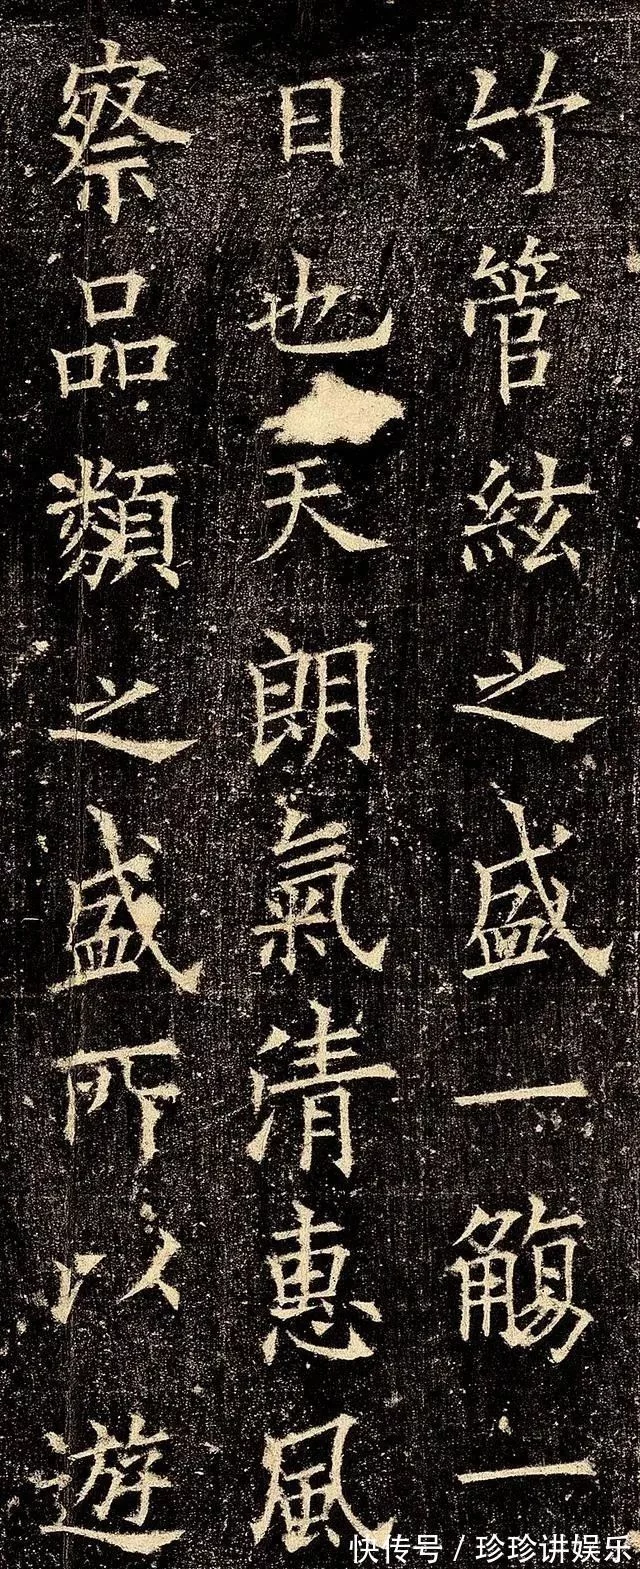 竹管絃之盛一觴一
日也天朗氣清惠風
察品類之盛所以遊
快传号/珍珍讲娱乐